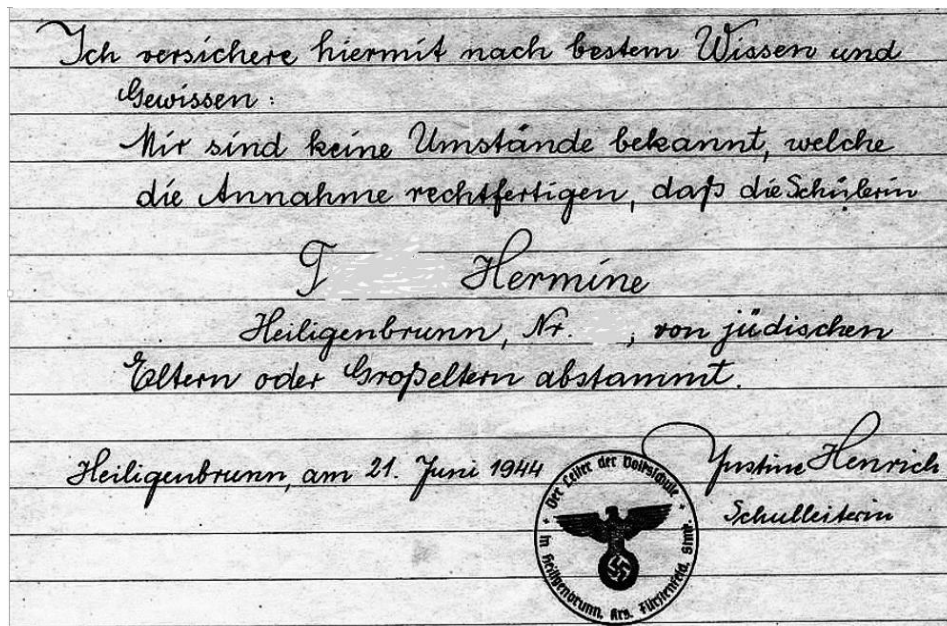 Ich versichere hiermit nach bestem Wissen und
Gewissen:
Mir sind keine Umstände bekannt, welche
die Annahme rechtfertigen, daß die Schülerin
T Hermine
Heiligenbrunn, Nr. , von jüdischen
Eltern oder Großeltern abstammt.
Heiligenbrunn, am 21. Juni 1944
Justine Henrich
Schulleiterin
Der Leiter der Volksschule
in Heiligenbrunn, Krs. Fürstenfeld, Stmk.